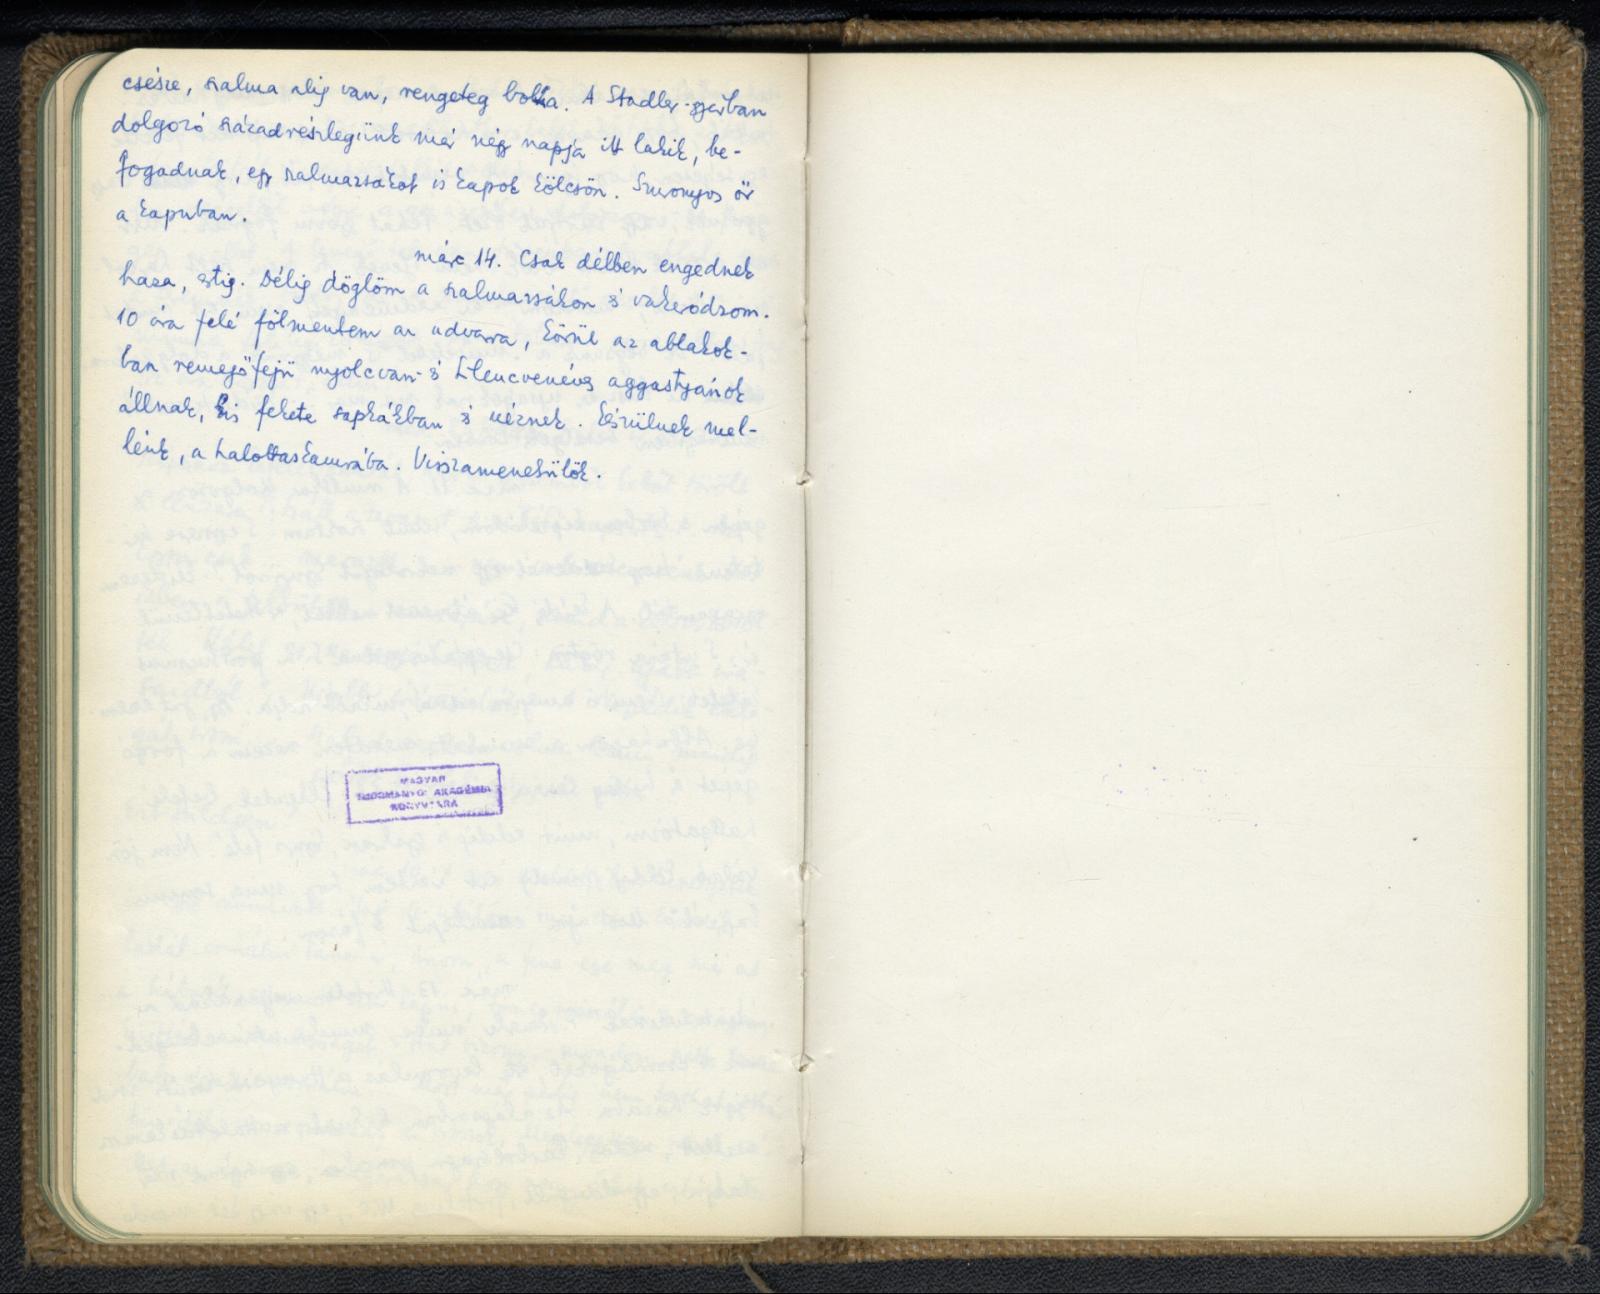 csésze, szalma alig van, rengeteg bolha. A Stadler-gyárban
dolgozó századrészlegünk már négy napja itt lakik, be-
fogadnak, egy szalmazsákot is kapok kölcsön. Szuronyos őr
a kapuban.
márc 14. Csak délben engednek
haza, stig. Délig döglöm a szalmazsákon s vakaródzom.
10 óra felé fölmentem az udvarra, körül az ablakok-
ban remegőfejű nyolcvan- s kilencvenéves aggastyánok
állnak, kis fekete sapkákban s néznek. Készülnek mel-
lénk, a halottaskamrába. Visszamenekülök.
MAGYAR
TUDOMÁNYOS AKADÉMIA
KÖNYVTÁRA